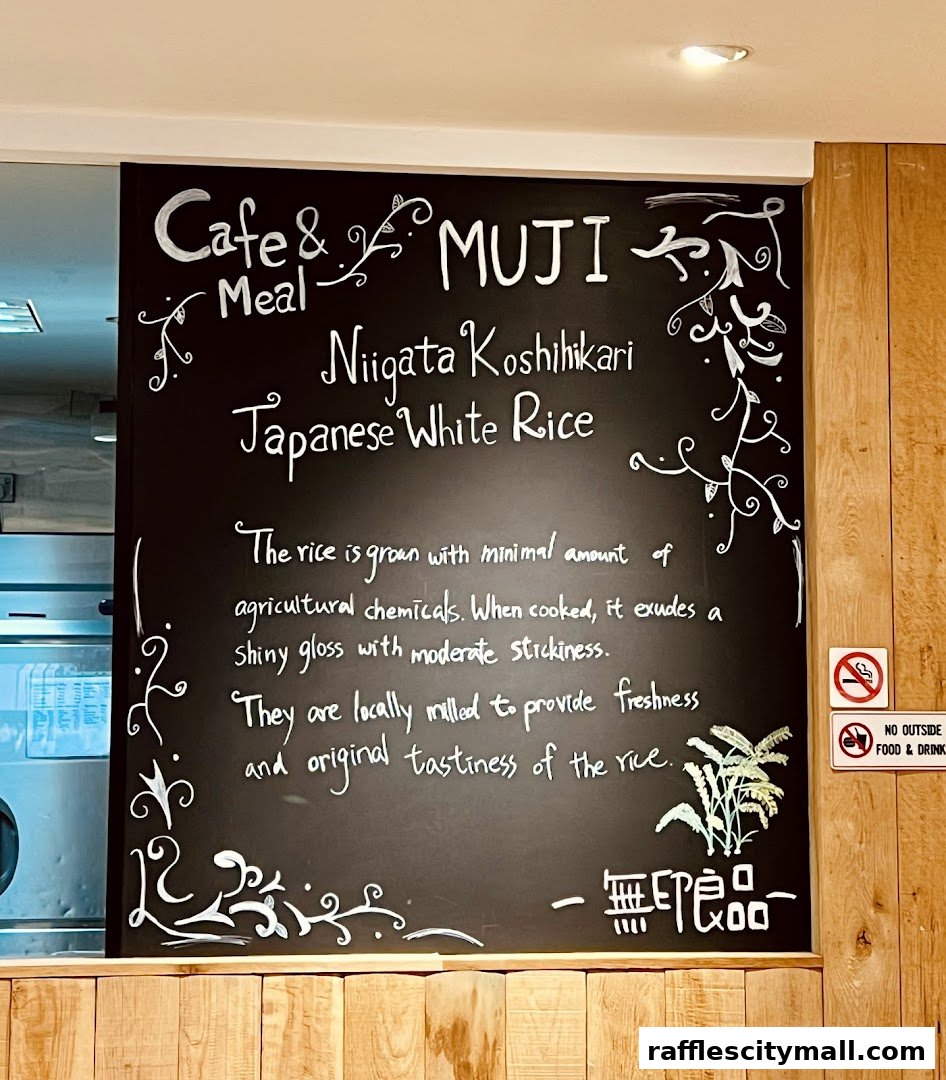 Cafe &
Meal
MUJI
Niigata Koshihikari
Japanese White Rice
The rice is grown with minimal amount of
agricultural chemicals. When cooked, it exudes a
shiny gloss with moderate stickiness.
They are locally milled to provide freshness
and original tastiness of the rice.
無印良品
NO OUTSIDE
FOOD & DRINK
rafflescitymall.com